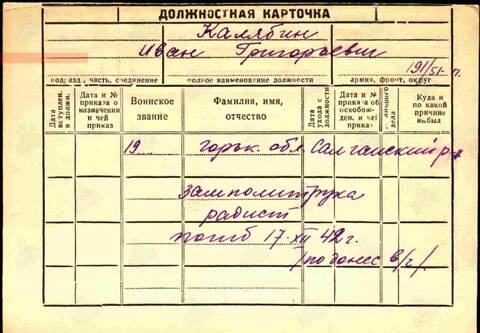 ДОЛЖНОСТНАЯ КАРТОЧКА
Калябин
Иван Григорьевич
191/51 п.
подразд., часть, соединение полное наименование должности армия, фронт, округ
Дата вступлен. в должн. Дата и № приказа о назначении и чей приказ Воинское звание Фамилия, имя, отчество Дата ухода с должности Дата и № приказа об освобожден. и чей приказ № личного дела Куда и по какой причине выбыл
19 горьк. обл. Салганский р-н
замполитрука
радист
погиб 17.XII 42 г.
/по донес в/ч/.